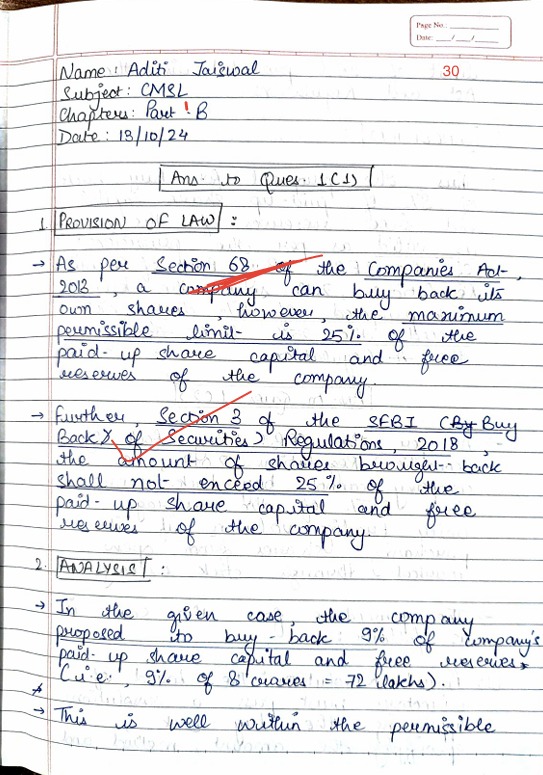 Page No.:
Date: __/__/__
Name: Aditi Jaiswal
30
Subject: CMSL
Chapters: Part ! B
Date: 18/10/24
Ans to Ques. 1(1)
1. PROVISION OF LAW :
→ As per Section 68 of the Companies Act,
2013, a company can buy back its
own shares, however, the maximum
permissible limit is 25% of the
paid-up share capital and free
reserves of the company.
→ Further, Section 3 of the SEBI (By Buy
Back) of Securities) Regulations, 2018,
the amount of shares brought back
shall not exceed 25% of the
paid-up share capital and free
reserves of the company.
2. ANALYSIS :
→ In the given case, the company
proposed to buy-back 9% of company's
paid-up share capital and free reserves
(i.e. 9% of 8 crares = 72 lakhs).
→ This is well within the permissible